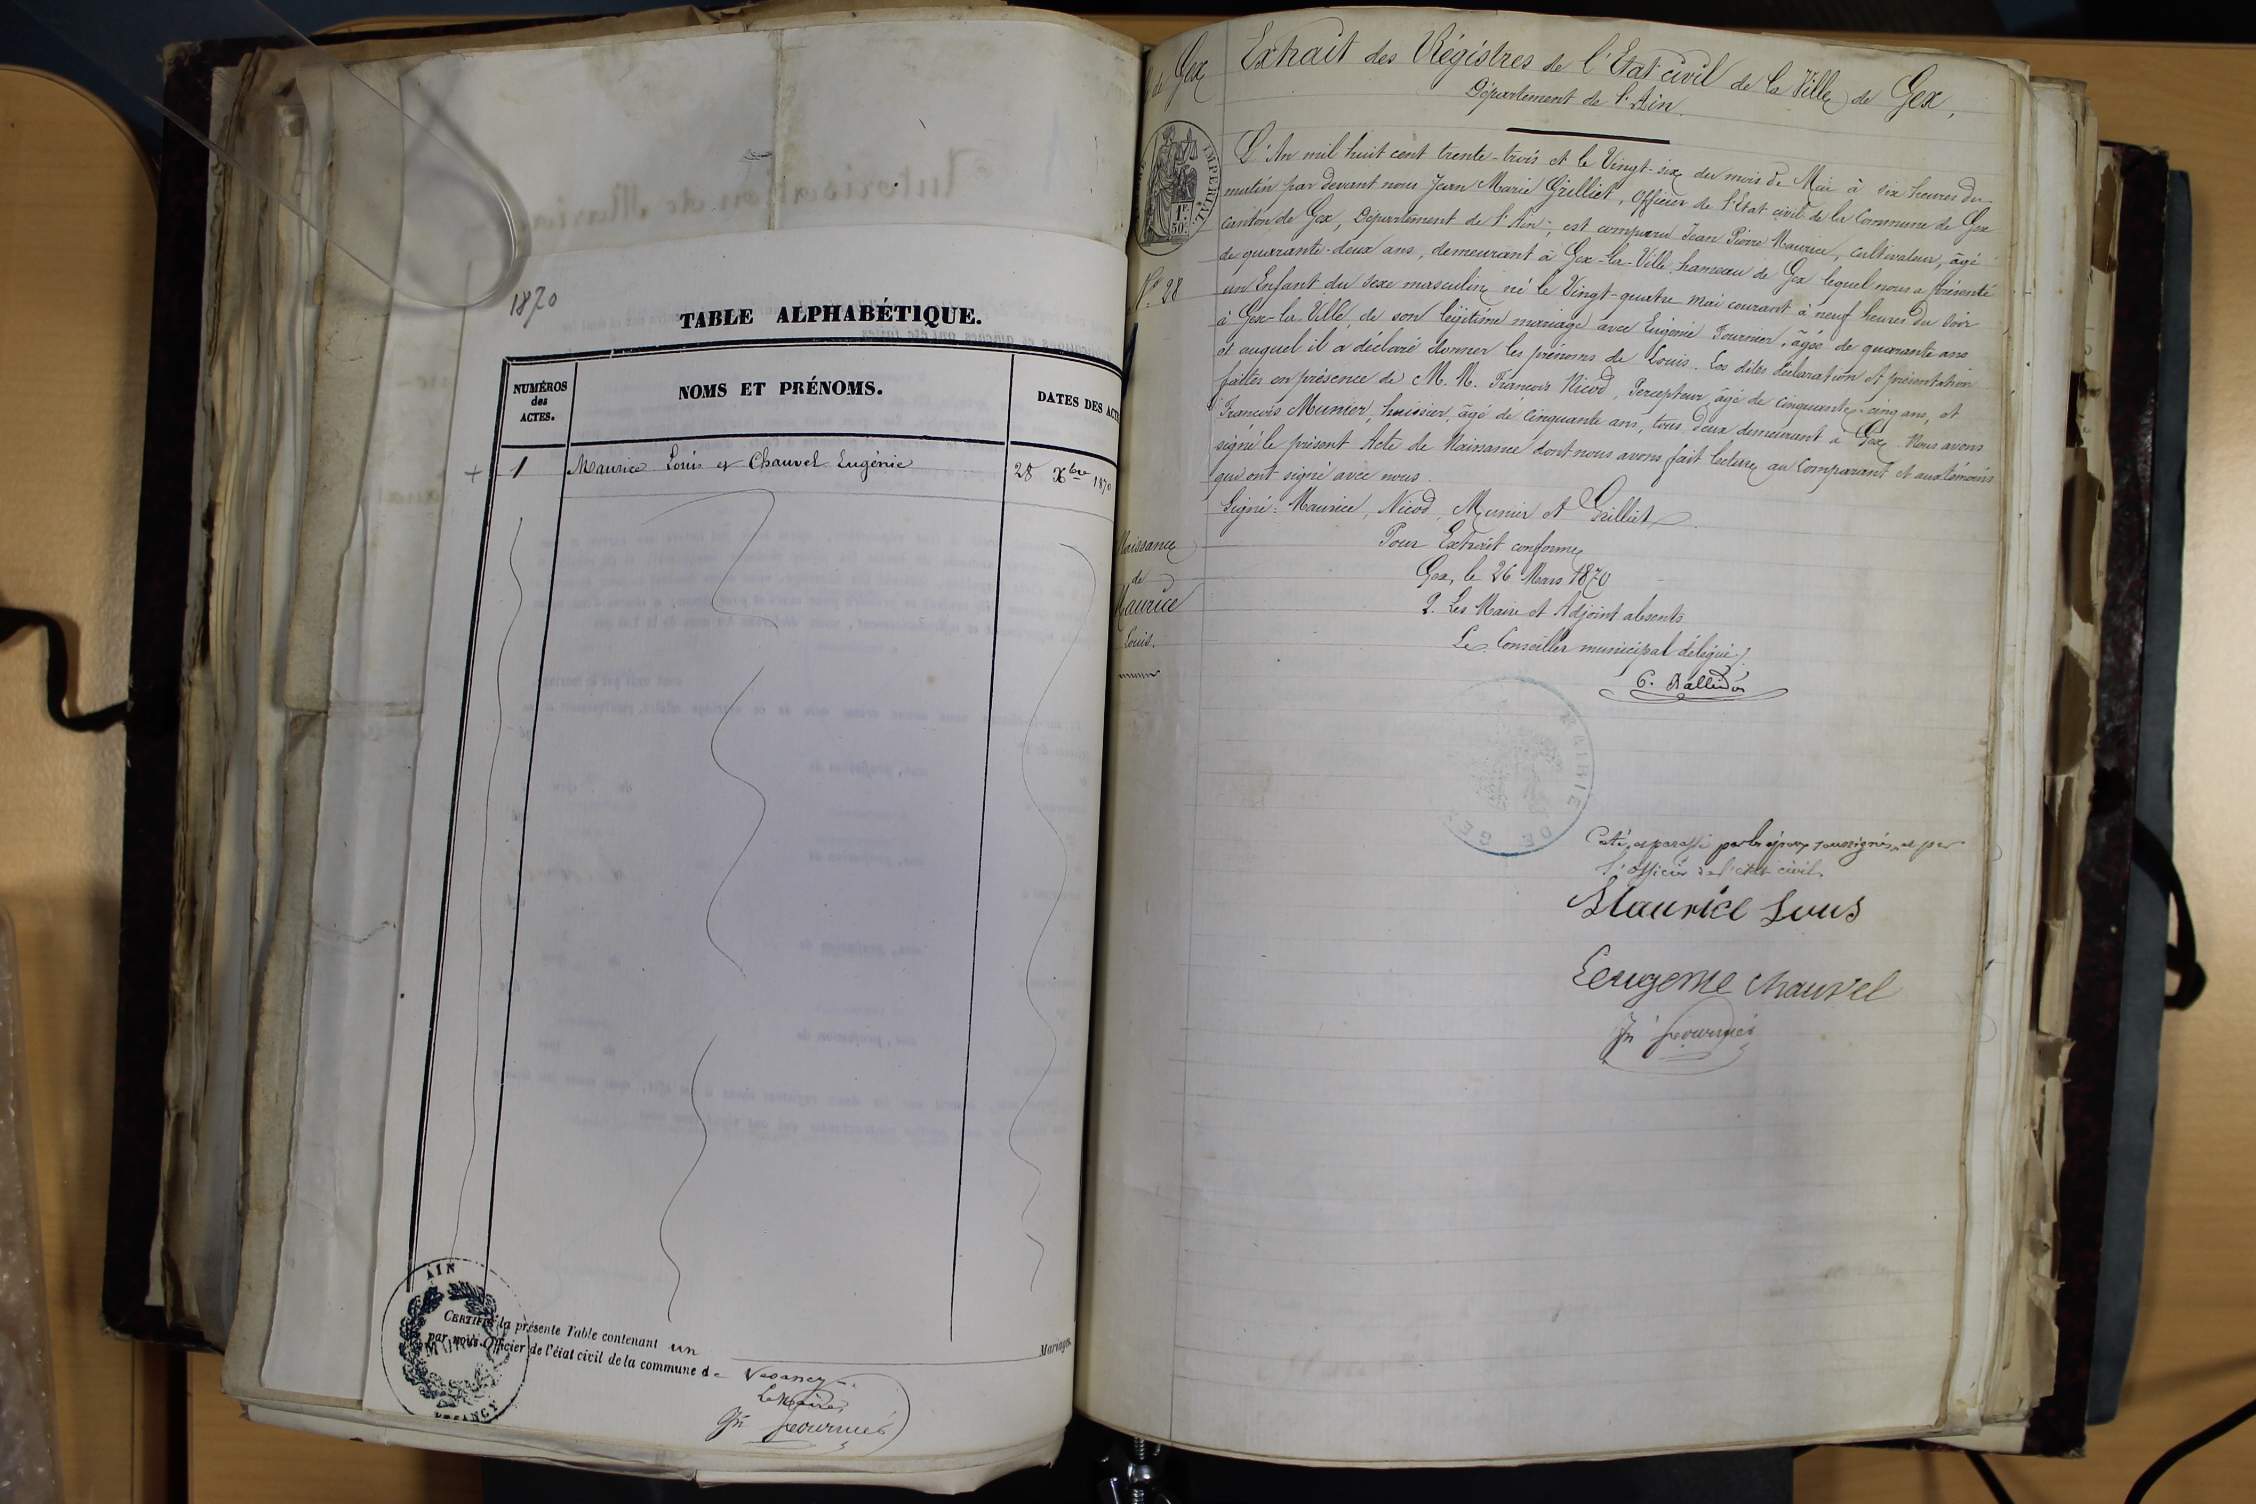 1870
TABLE ALPHABÉTIQUE.
NUMÉROS
des
ACTES.
NOMS ET PRÉNOMS.
DATES DES ACTES
1 Maurice Louis et Chauvel Eugénie 28 Xbre 1870
AIN
CERTIFIÉ la présente Table contenant un
par nous Officier de l'état civil de la commune de Vesancy
Mariages.
Le Maire
Jn Fournier
de Gex
Extrait des Régistres de l'Etat civil de la Ville de Gex,
Département de l'Ain.
IMPERIAL
1F.
50c.
No 28
L'An mil huit cent trente-trois et le Vingt-six du mois de Mai à six heures du
matin par devant nous Jean Marie Grilliet, Officier de l'Etat civil de la Commune de Gex
canton de Gex, Département de l'Ain, est comparu Jean Pierre Maurice, cultivateur, âgé
de quarante-deux ans, demeurant à Gex-la-Ville hameau de Gex lequel nous a présenté
un Enfant du sexe masculin né le Vingt-quatre mai courant à neuf heures du soir
à Gex-la-Ville, de son légitime mariage avec Eugénie Fournier, âgée de quarante ans
et auquel il a déclaré donner les prénoms de Louis. Les dites déclaration et présentation
faites en présence de M. M. François Nicod, Percepteur, âgé de cinquante-cinq ans, et
François Munier, huissier, âgé de cinquante ans, tous deux demeurant à Gex. Nous avons
signé le présent Acte de Naissance dont nous avons fait lecture au Comparant et aux témoins
qui ont signé avec nous.
Signé: Maurice, Nicod, Munier et Grilliet
Naissance
de
Maurice
Louis.
Pour Extrait conforme
Gex, le 26 Mars 1870
P. Les Maire et Adjoint absents
Le Conseiller municipal délégué
MAIRIE DE GEX
Coté et paraffé par les époux soussignés et par
l'officier de l'état civil
Maurice Louis
Eeugenie Chauvel
Jn Fournier